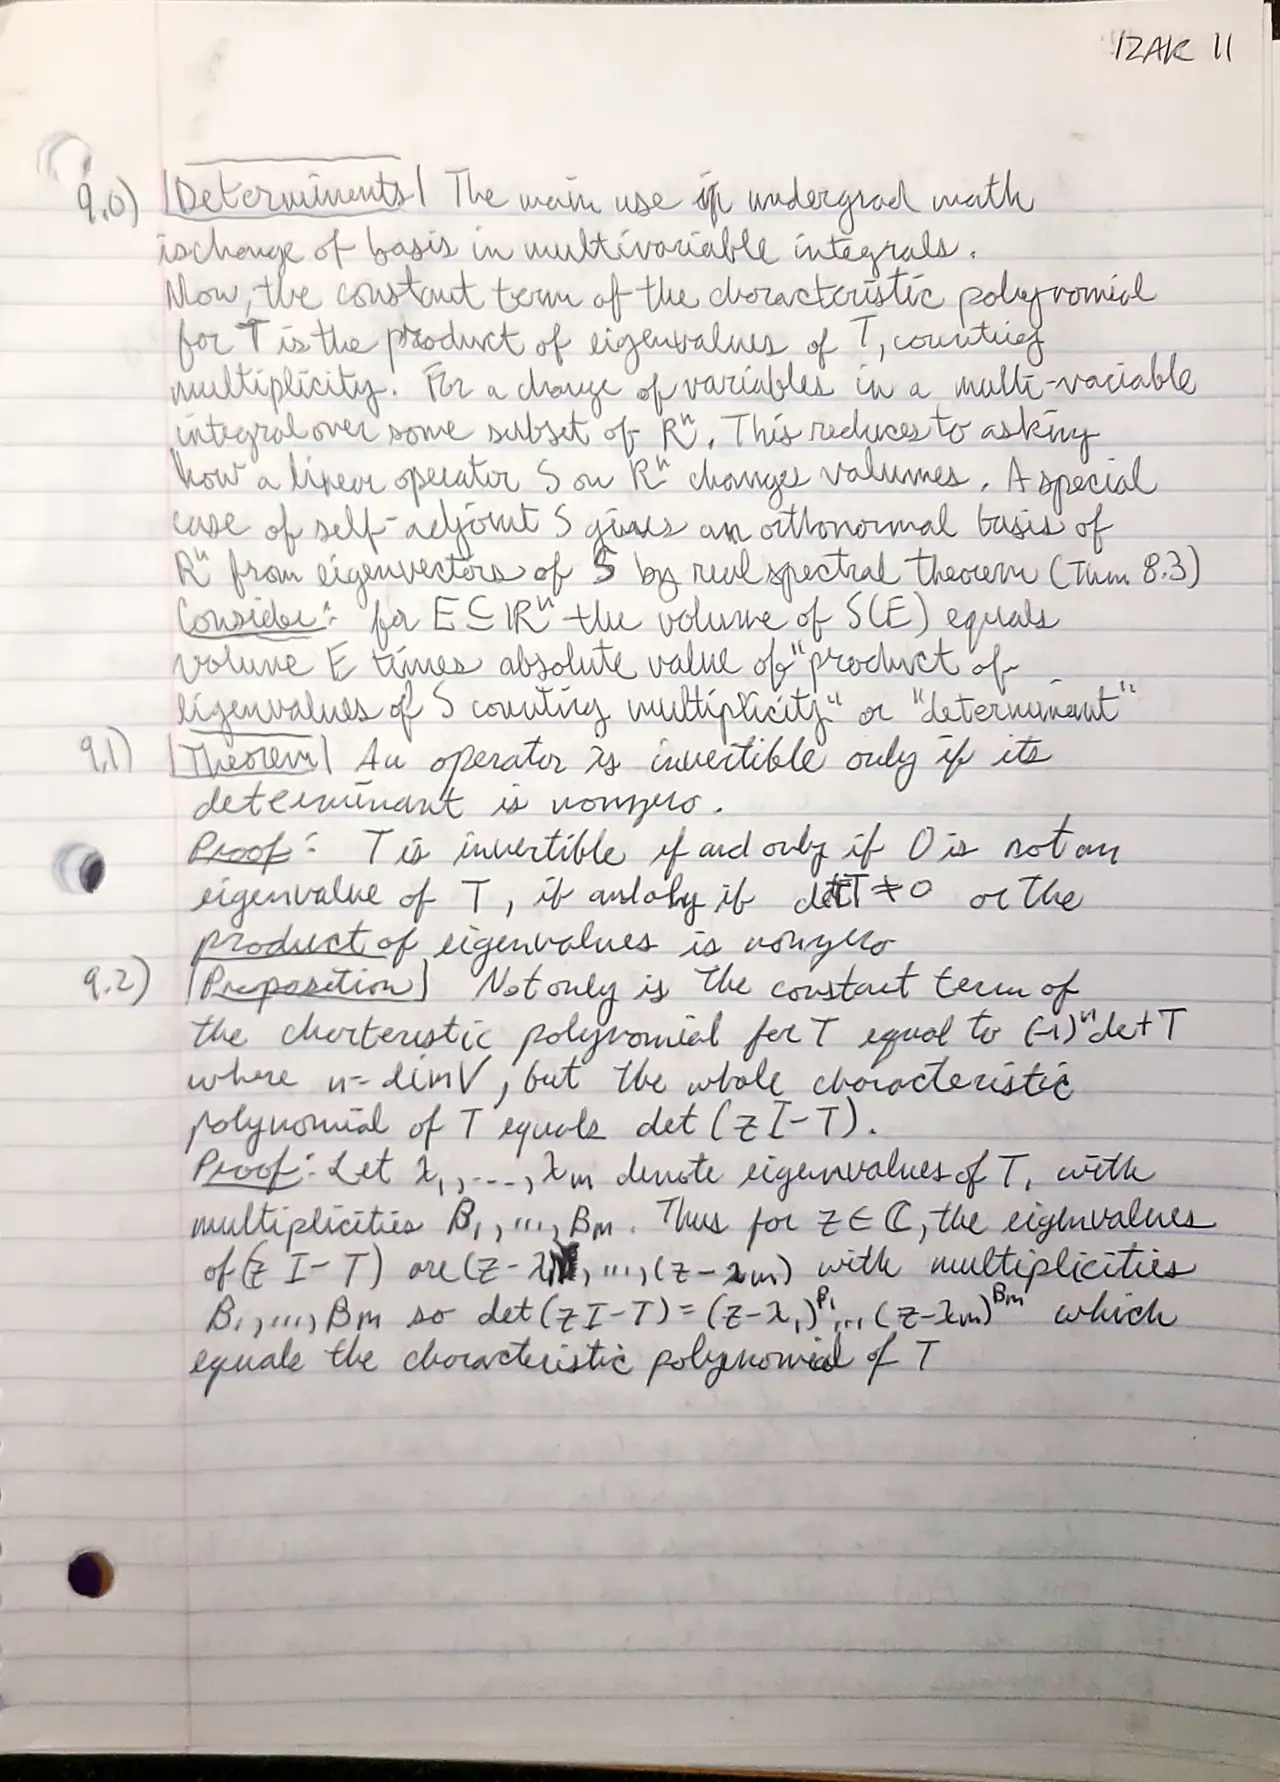 IZAK 11
9.0) |Determinents| The main use in undergrad math
is change of basis in multivariable integrals.
Now, the constant term of the characteristic polynomial
for T is the product of eigenvalues of T, counting
multiplicity. For a change of variables in a multi-variable
integral over some subset of Rⁿ. This reduces to asking
how a linear operator S on Rⁿ changes volumes. A special
case of self-adjoint S gives an orthonormal basis of
Rⁿ from eigenvectors of S by real spectral theorem (Thm 8.3)
Consider: for E ⊆ ℝⁿ the volume of S(E) equals
volume E times absolute value of "product of
eigenvalues of S counting multiplicity" or "determinant"
9.1) |Theorem| An operator is invertible only if its
determinant is nonzero.
Proof: T is invertible if and only if 0 is not an
eigenvalue of T, if and only if det T ≠ 0 or the
product of eigenvalues is nonzero
9.2) |Proposition| Not only is the constant term of
the charteristic polynomial for T equal to (-1)ⁿ det T
where n = dim V, but the whole characteristic
polynomial of T equals det (zI - T).
Proof: Let λ₁, ..., λm denote eigenvalues of T, with
multiplicities B₁, ..., Bm. Thus for z ∈ ℂ, the eigenvalues
of (z I - T) are (z - λ₁), ..., (z - λm) with multiplicities
B₁, ..., Bm so det (zI - T) = (z - λ₁)^β₁ ... (z - λm)^Bm which
equals the characteristic polynomial of T